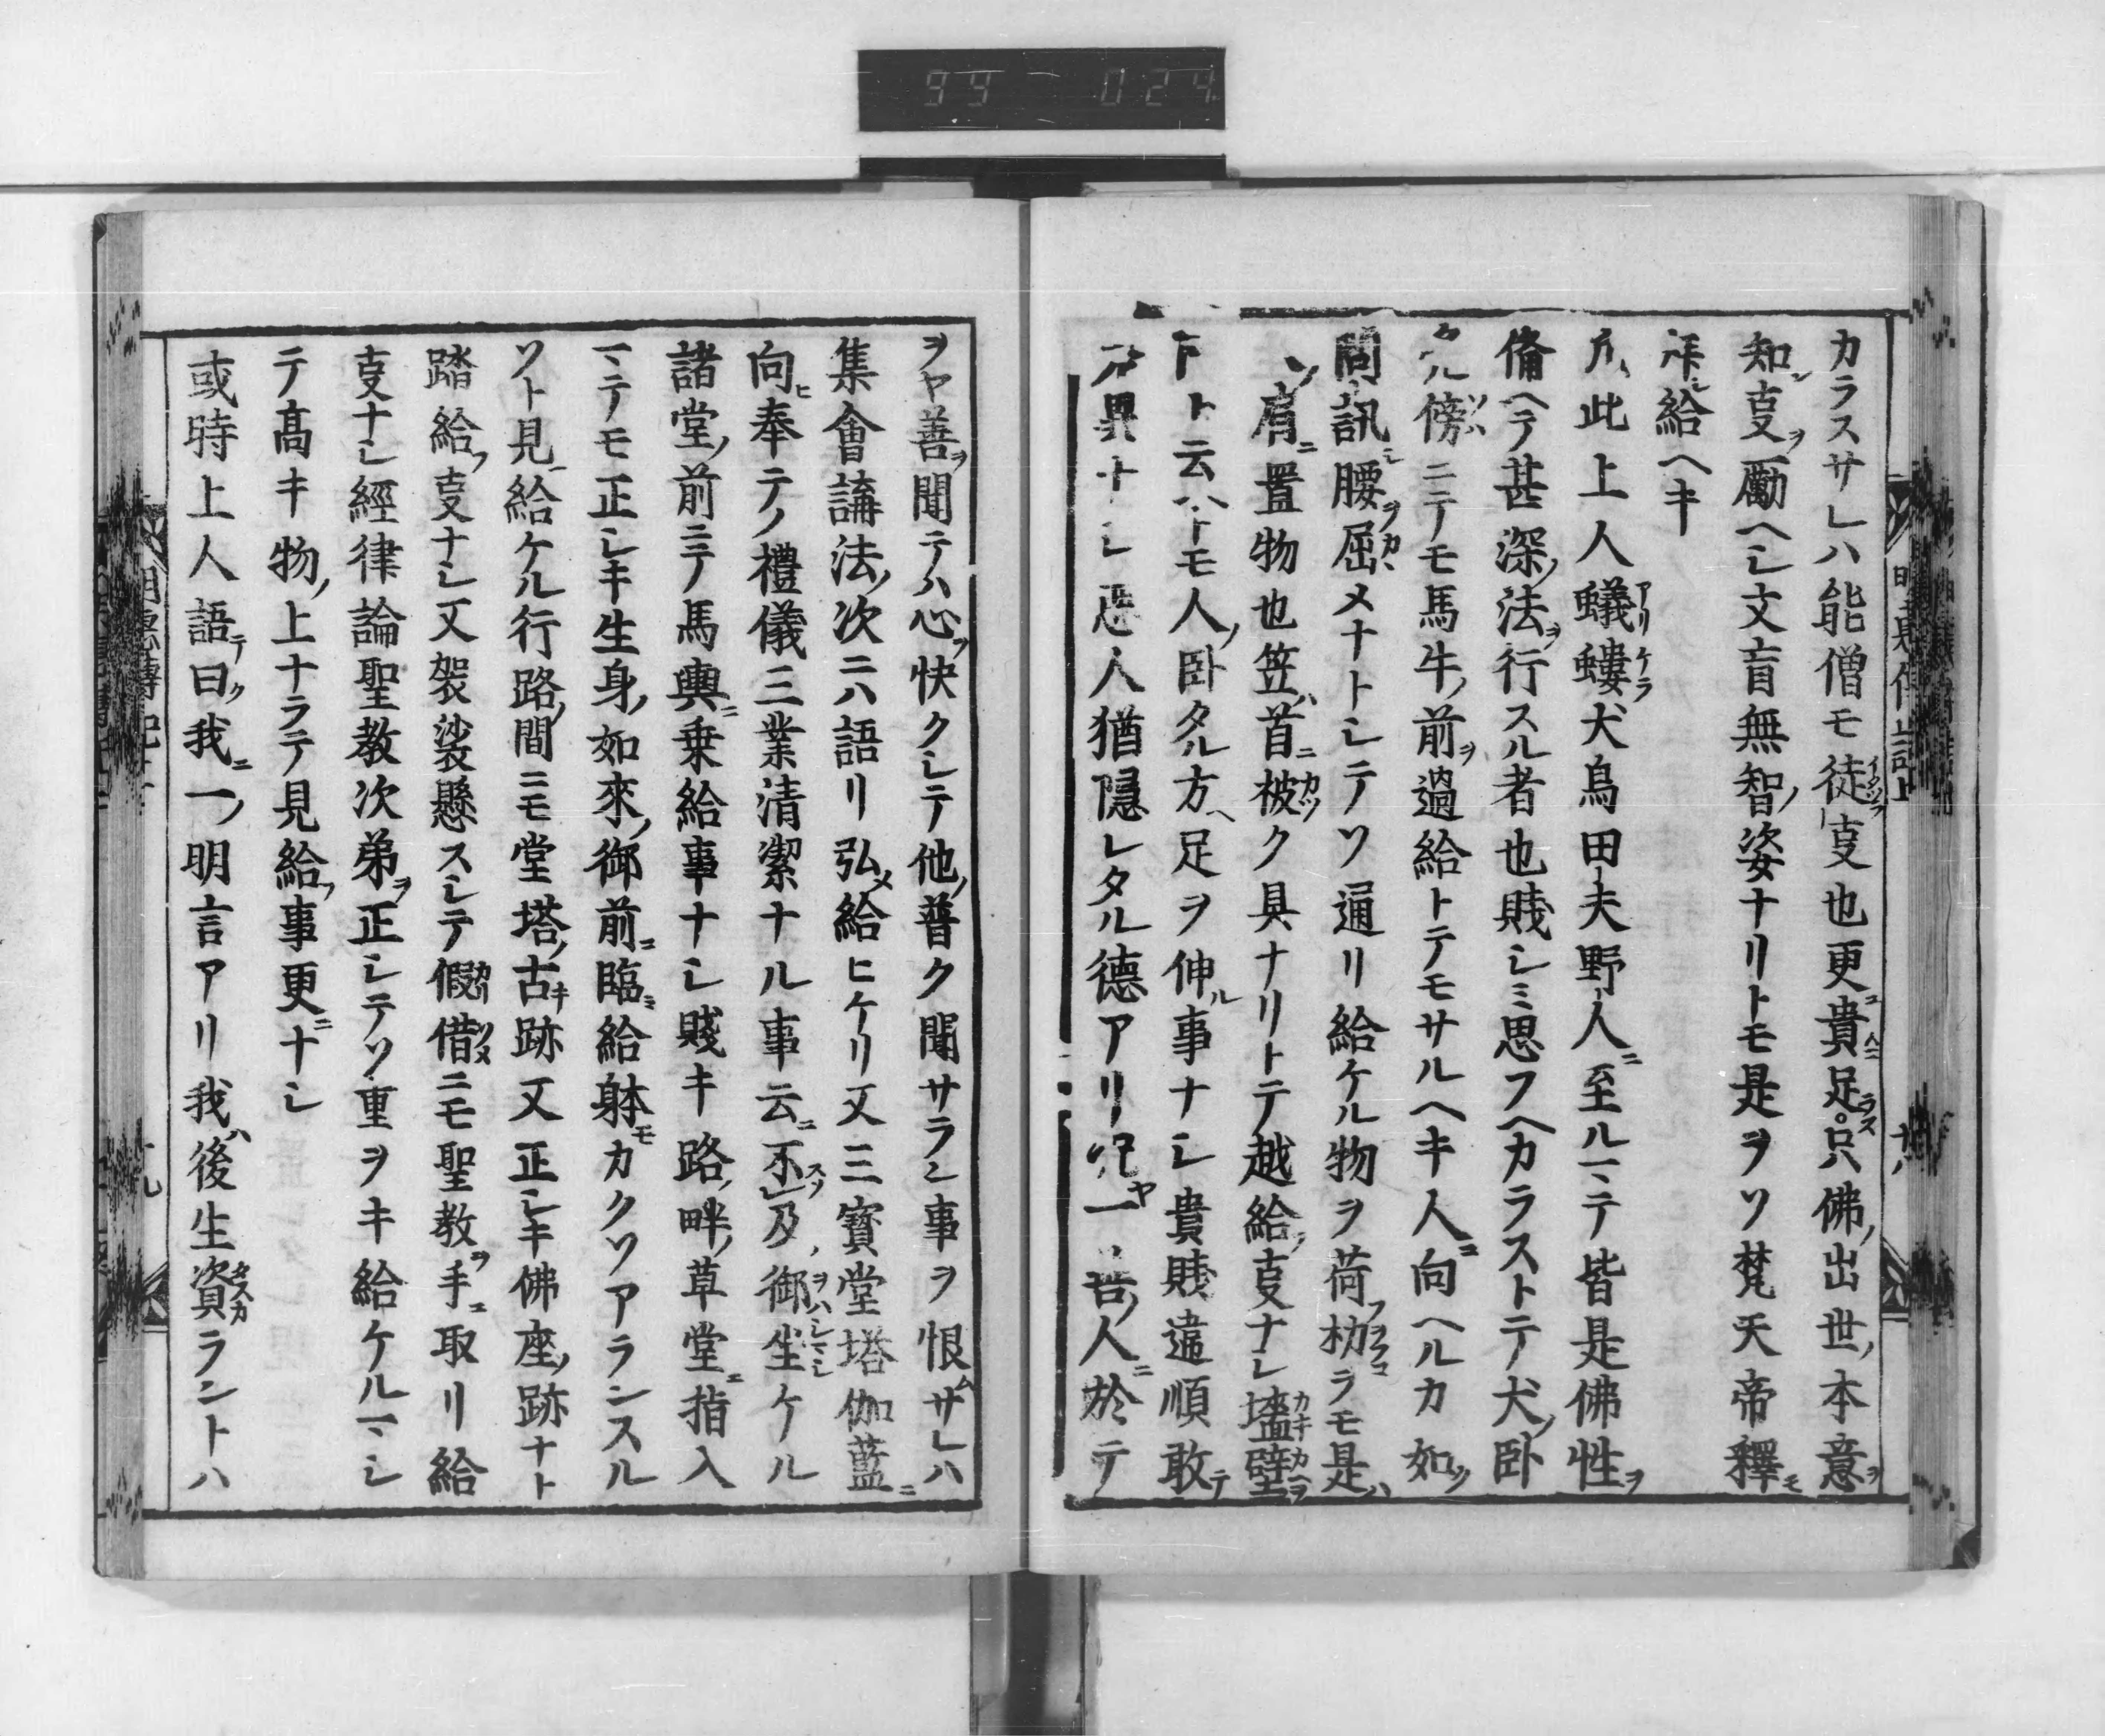 カラスサレハ能僧モ徒事也更貴足ラス只佛ノ出世ノ本意ヲ
知ン事ヲ勵ヘシ文盲無智ノ姿ナリトモ是ヲソ梵天帝釋モ
拝シ給ヘキ
凡ソ此上人蟻螻犬烏田夫野人ニ至ルマテ皆是佛性ヲ
備ヘテ甚深ノ法ヲ行スル者也賤シミ思フヘカラストテ犬ノ臥
タル傍ニテモ馬牛ノ前ヲ過給トテモサルヘキ人ニ向ヘルカ如ク
問訊シ腰ヲ屈メナトシテソ通リ給ケル物ヲ荷フ朸ラモ是ハ
肩ニ置物也笠ハ首ニ被ク具ナリトテ越給フ事ナシ墻壁ヲ
下ト云ヘトモ人ノ臥タル方ヘ足ヲ伸ル事ナシ貴賤違順敢テ
異ナシ惡人猶隱レタル德アリ況ヤ一善ノ人ニ於テ
ヲヤ善ヲ聞テハ心ヲ快クシテ他ノ普ク聞サラン事ヲ恨ムサレハ
集會講法ノ次ニハ語リ弘メ給ヒケリ又三寳堂塔伽藍ニ
向ヒ奉テノ禮儀三業清潔ナル事云ニ不及ヲハシマシケル
諸堂ノ前ニテ馬輿ニ乗給事ナシ賤キ路ノ畔ノ草堂ニ指入
マテモ正シキ生身ノ如來ノ御前ニ臨ミ給躰モカクソアランスル
ソト見ヘ給ケル行路ノ間ニモ堂塔ノ古キ跡又正シキ佛座ノ跡ナト
踏給フ事ナシ又袈裟懸スシテ假借ニモ聖教ヲ手ニ取リ給
事ナシ經律論聖教次第ヲ正シテソ重ヲキ給ケルマシ
テ髙キ物ノ上ナラテ見給フ事更ニナシ
或時上人語テ曰ク我ニ一ノ明言アリ我ハ後生資ラントハ